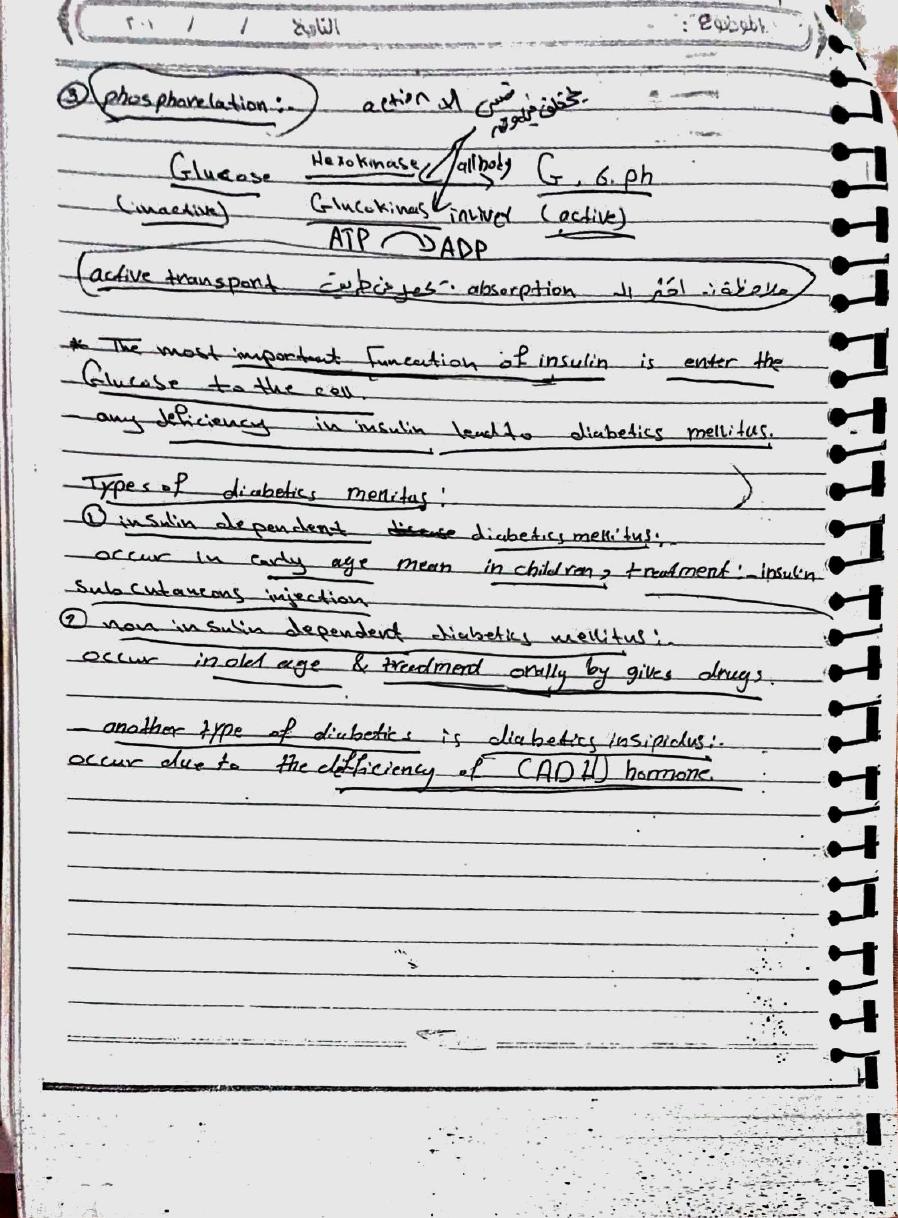 الموضوع : التاريخ / / ٢٠١
③ phosphorelation :- action الـ نفس
يختلف
Glucose Hexokinase all body G. 6. ph
(inactive) Glucokinas inliver (active)
ATP ADP
ملاحظة :- اكثر الـ absorption عن طريق active transport
* The most important Funcation of insulin is enter the
Glucose to the cell.
- any deficiency in insulin lead to diabetics mellitus.
Types of diabetics mellitus :
① insulin dependent diabetics mellitus :-
occur in early age mean in children, treatment :- insulin
subcutaneons injection
② non insulin dependent diabetics mellitus :-
occur in old age & treadmend orally by gives drugs.
- another type of diabetics is diabetics insipidus :-
occur due to the defficiency of (ADH) hormone.